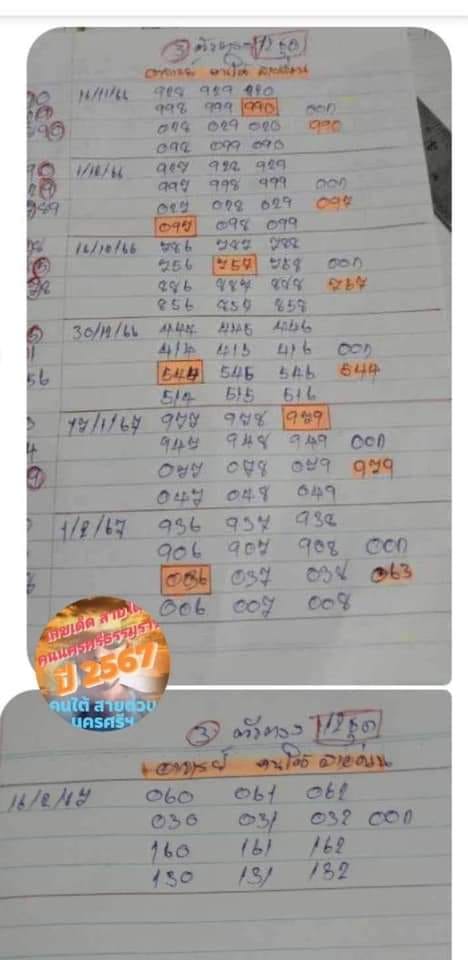 ③ ตัวตรง 12 ชุด
อาจารย์ คนใต้ สายด่วน
16/11/66 928 929 920
998 999 990 ออก
028 029 020 990
098 099 090
1/12/66 927 928 929
997 998 999 ออก
027 028 029 097
097 098 099
16/12/66 786 787 788
756 757 758 ออก
886 887 888 757
856 857 858
30/12/66 444 445 446
414 415 416 ออก
544 545 546 544
514 515 516
17/1/67 977 978 979
947 948 949 ออก
077 078 079 979
047 048 049
1/2/67 936 937 938
906 907 908 ออก
036 037 038 063
006 007 008
ปี 2567
คนใต้ สายด่วน
นครศรีฯ
③ ตัวตรง 12 ชุด
อาจารย์ คนใต้ สายด่วน
16/2/67 060 061 062
030 031 032 ออก
160 161 162
130 131 132